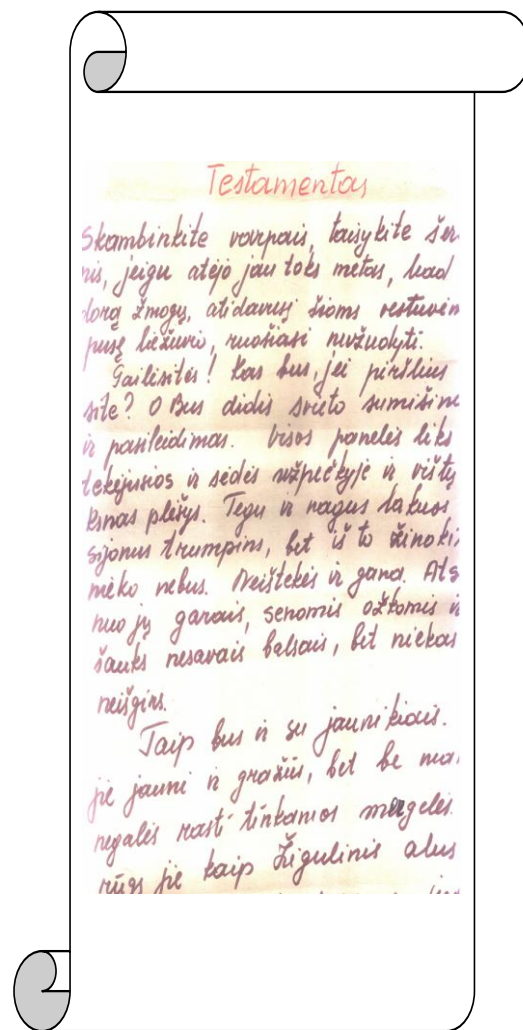 Testamentas
Skambinkite varpais, taisykite šer
nis, jeigu atėjo jau toks metas, kad
dorą žmogų, atidavusį šioms vestuvėm
pusę liežuvio, ruošiasi nužudyti.
Gailėsitės! Kas bus, jei piršlius
site? O Bus didis svieto sumišim
ir pasileidimas. Visos panelės liks
tekėjusios ir sėdės užpečkyje ir vištų
ksnas plėšys. Tegu ir nagus lakuos
sijonus trumpins, bet iš to žinoki
nieko nebus. Neištekės ir gana. Ats
nuo jų garais, senomis ožkomis i
šauks nesavais balsais, bet niekas
neišgirs.
Taip bus ir su jaunikiais.
jie jauni ir gražūs, bet be ma
negalės rasti tinkamos mergelės.
rūgs jie kaip Žigulinis alus